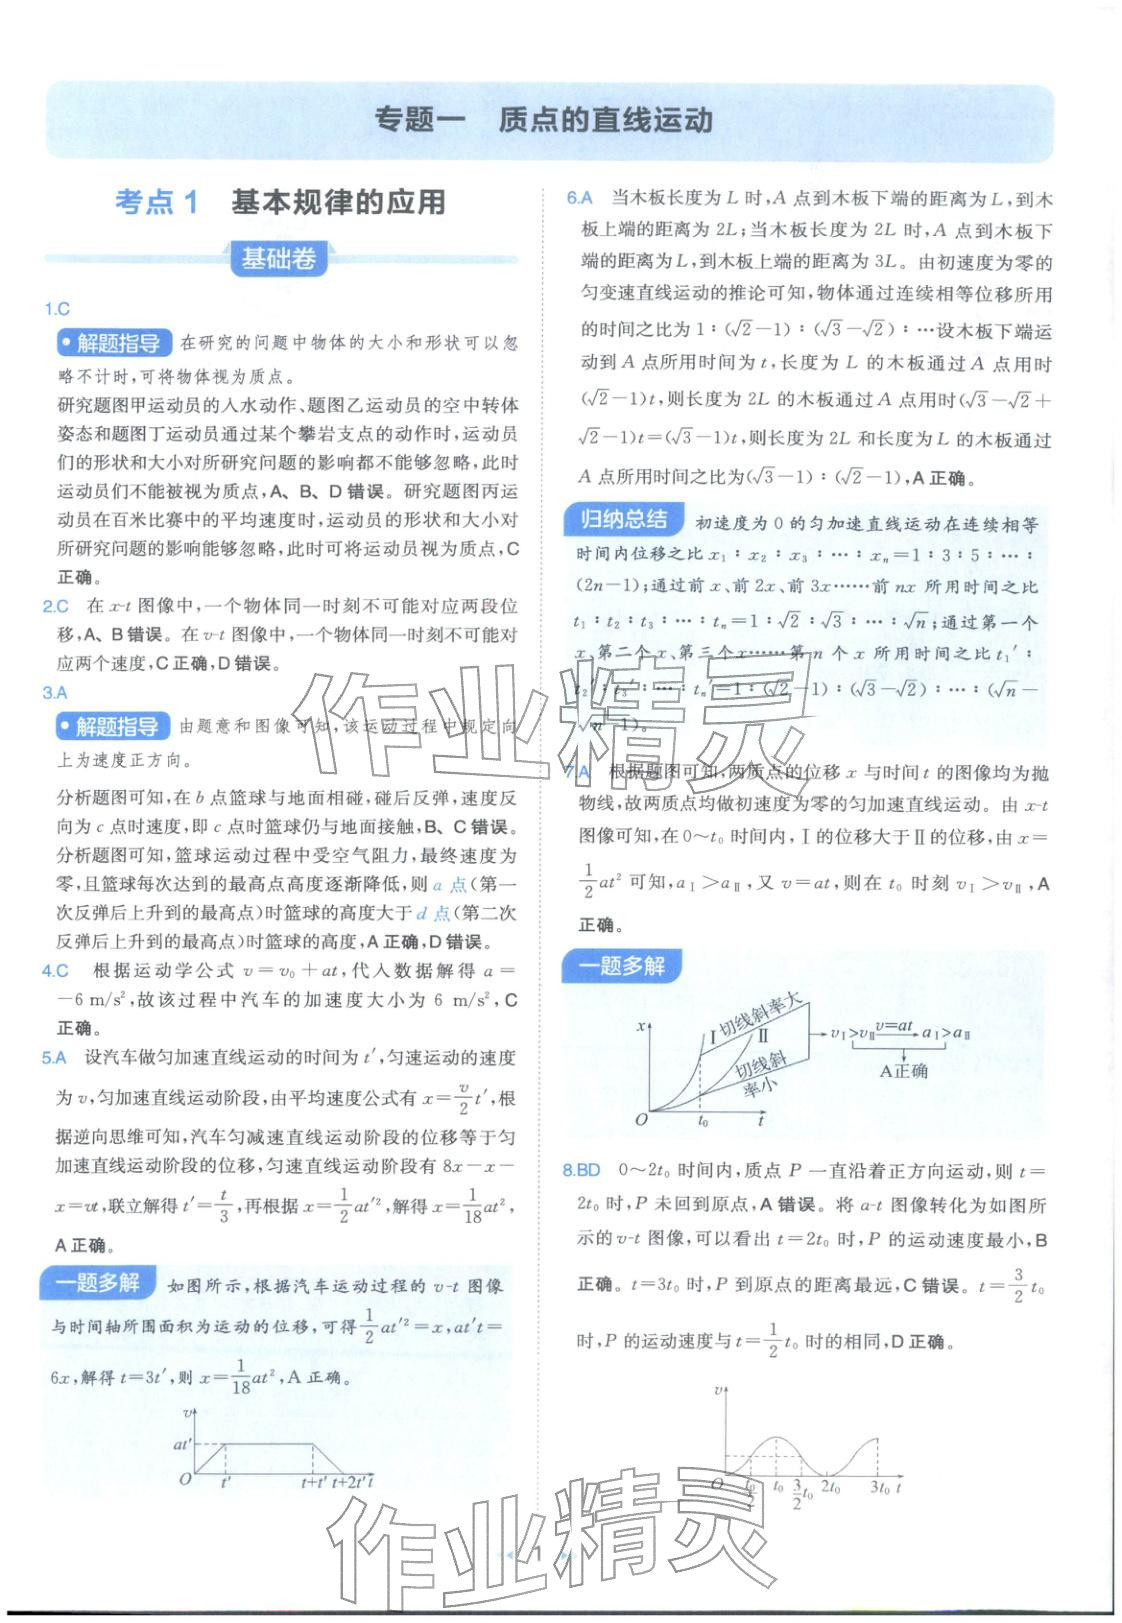 专题一　质点的直线运动
考点 1　基本规律的应用
基础卷
1.C
解题指导　在研究的问题中物体的大小和形状可以忽
略不计时,可将物体视为质点。
研究题图甲运动员的入水动作、题图乙运动员的空中转体
姿态和题图丁运动员通过某个攀岩支点的动作时,运动员
们的形状和大小对所研究问题的影响都不能够忽略,此时
运动员们不能被视为质点,A、B、D 错误。研究题图丙运
动员在百米比赛中的平均速度时,运动员的形状和大小对
所研究问题的影响能够忽略,此时可将运动员视为质点,C
正确。
2.C　在 x-t 图像中,一个物体同一时刻不可能对应两段位
移,A、B 错误。在 v-t 图像中,一个物体同一时刻不可能对
应两个速度,C 正确,D 错误。
3.A
解题指导　由题意和图像可知,该运动过程中规定向
上为速度正方向。
分析题图可知,在 b 点篮球与地面相碰,碰后反弹,速度反
向为 c 点时速度,即 c 点时篮球仍与地面接触,B、C 错误。
分析题图可知,篮球运动过程中受空气阻力,最终速度为
零,且篮球每次达到的最高点高度逐渐降低,则 a 点(第一
次反弹后上升到的最高点)时篮球的高度大于 d 点(第二次
反弹后上升到的最高点)时篮球的高度,A 正确,D 错误。
4.C　根据运动学公式 v=v₀+at,代入数据解得 a=
-6 m/s²,故该过程中汽车的加速度大小为 6 m/s²,C
正确。
5.A　设汽车做匀加速直线运动的时间为 t′,匀速运动的速度
为 v,匀加速直线运动阶段,由平均速度公式有 x=v/2 t′,根
据逆向思维可知,汽车匀减速直线运动阶段的位移等于匀
加速直线运动阶段的位移,匀速直线运动阶段有 8x-x-
x=vt,联立解得 t′=t/3,再根据 x=1/2 at′²,解得 x=1/18 at²,
A 正确。
一题多解　如图所示,根据汽车运动过程的 v-t 图像
与时间轴所围面积为运动的位移,可得 1/2 at′²=x,at′t=
6x,解得 t=3t′,则 x=1/18 at²,A 正确。
v
at′
O t′ t+t′ t+2t′ t
6.A　当木板长度为 L 时,A 点到木板下端的距离为 L,到木
板上端的距离为 2L;当木板长度为 2L 时,A 点到木板下
端的距离为 L,到木板上端的距离为 3L。由初速度为零的
匀变速直线运动的推论可知,物体通过连续相等位移所用
的时间之比为 1∶(√2-1)∶(√3-√2)∶…设木板下端运
动到 A 点所用时间为 t,长度为 L 的木板通过 A 点用时
(√2-1)t,则长度为 2L 的木板通过 A 点用时(√3-√2+
√2-1)t=(√3-1)t,则长度为 2L 和长度为 L 的木板通过
A 点所用时间之比为(√3-1)∶(√2-1),A 正确。
归纳总结　初速度为 0 的匀加速直线运动在连续相等
时间内位移之比 x₁∶x₂∶x₃∶…∶xₙ=1∶3∶5∶…∶
(2n-1);通过前 x、前 2x、前 3x……前 nx 所用时间之比
t₁∶t₂∶t₃∶…∶tₙ=1∶√2∶√3∶…∶√n;通过第一个
x、第二个 x、第三个 x……第 n 个 x 所用时间之比 t₁′∶
t₂′∶t₃′∶…∶tₙ′=1∶(√2-1)∶(√3-√2)∶…∶(√n-
√n-1)。
7.A　根据题图可知,两质点的位移 x 与时间 t 的图像均为抛
物线,故两质点均做初速度为零的匀加速直线运动。由 x-t
图像可知,在 0～t₀ 时间内,Ⅰ的位移大于Ⅱ的位移,由 x=
1/2 at² 可知,aⅠ>aⅡ,又 v=at,则在 t₀ 时刻 vⅠ>vⅡ,A
正确。
一题多解
x Ⅰ 切线斜率大 Ⅱ 切线斜率小 O t₀ t
vⅠ>vⅡ v=at aⅠ>aⅡ
A正确
8.BD　0～2t₀ 时间内,质点 P 一直沿着正方向运动,则 t=
2t₀ 时,P 未回到原点,A 错误。将 a-t 图像转化为如图所
示的 v-t 图像,可以看出 t=2t₀ 时,P 的运动速度最小,B
正确。t=3t₀ 时,P 到原点的距离最远,C 错误。t=3/2 t₀
时,P 的运动速度与 t=1/2 t₀ 时的相同,D 正确。
v
O t₀/2 t₀ 3/2 t₀ 2t₀ 3t₀ t
作业精灵
作业精灵
1